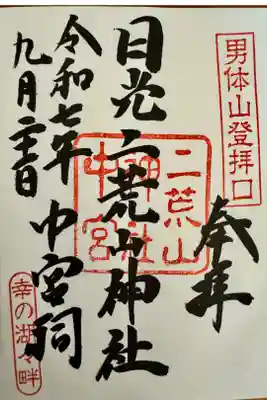 男体山登拝口
奉拝
日光二荒山神社
中宮祠
二荒山
神社
中宮
令和七年
九月二十三日
幸の湖々畔